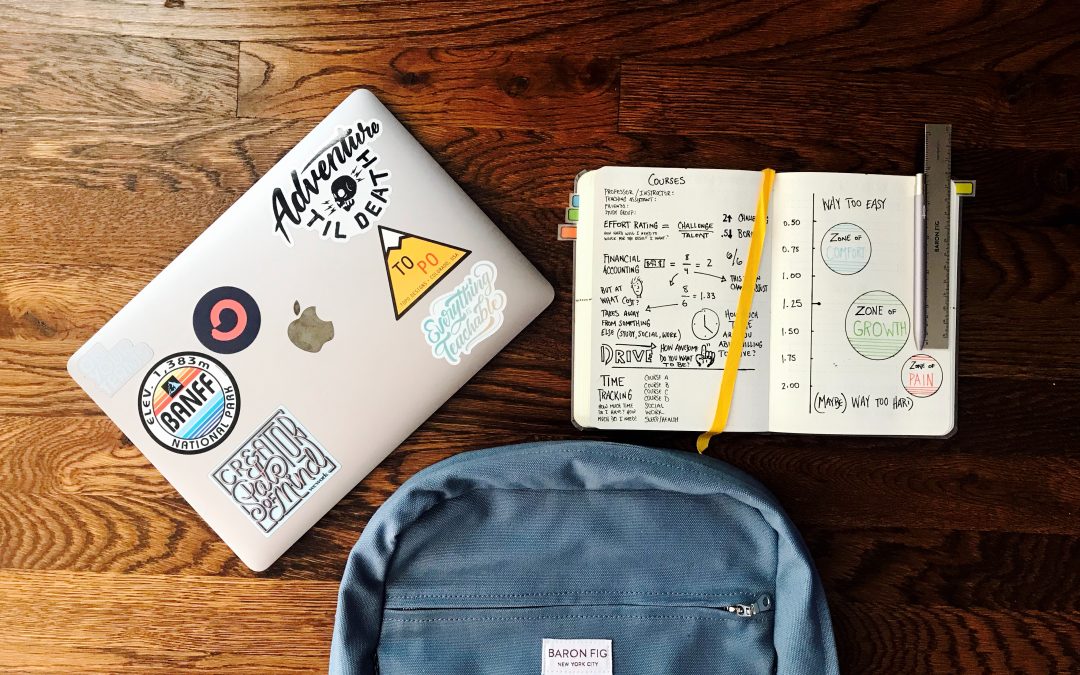 Adventure
'TIL DEATH
TO PO
Everything
Teachable
ELEV. 1,383m
BANFF
NATIONAL PARK
CREATOR
State
of Mind
COURSES
PROFESSOR / INSTRUCTOR:
TEACHING ASSISTANT:
FRIENDS:
STUDY GROUP:
EFFORT RATING = CHALLENGE
TALENT
HOW HARD WILL I NEED TO
WORK FOR THE RESULT I WANT?
2↑
.5↓
FINANCIAL
ACCOUNTING
= 8/4 = 2
6/6
BUT AT
WHAT COST?
8/6 = 1.33
THIS
TAKES AWAY
FROM SOMETHING
ELSE (STUDY, SOCIAL, WORK)
HOW MUCH
ARE
YOU
WILLING
DRIVE
HOW AWESOME
DO YOU WANT
TO BE?
TIME
TRACKING
HOW MUCH TIME
DO I HAVE? HOW
MUCH DO I NEED?
COURSE A
COURSE B
COURSE C
COURSE D
SOCIAL
WORK
SLEEP/HEALTH
WAY TOO EASY
0.50
0.75
1.00
1.25
1.50
1.75
2.00
ZONE OF
COMFORT
ZONE OF
GROWTH
ZONE OF
PAIN
(MAYBE) WAY TOO HARD
BARON FIG
BARON FIG
NEW YORK CITY